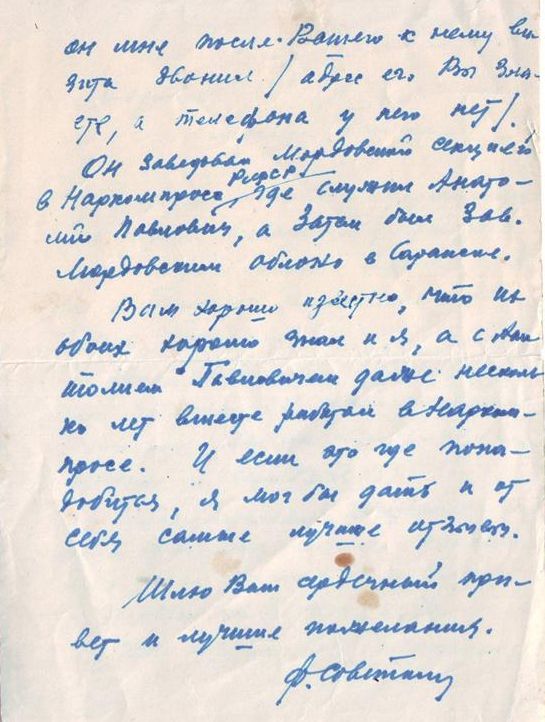 он мне после Вашего к нему ви-
зита звонил / адрес его Вы зна-
ете, а телефона у него нет/.
Он заведовал Мордовской секцией
в Наркомпросе РСФСР, где служил Анато-
лий Павлович, а затем был зав.
Мордовским облоно в Саранске.
Вам хорошо известно, что их
обоих хорошо знал и я, а с Ана-
толием Павловичем даже несколь
ко лет вместе работал в Нарком-
просе. И если это где пона-
добится, я мог бы дать и от
себя самые лучшие отзывы.
Шлю Вам сердечный при-
вет и лучшие пожелания.
Ф. Советкин